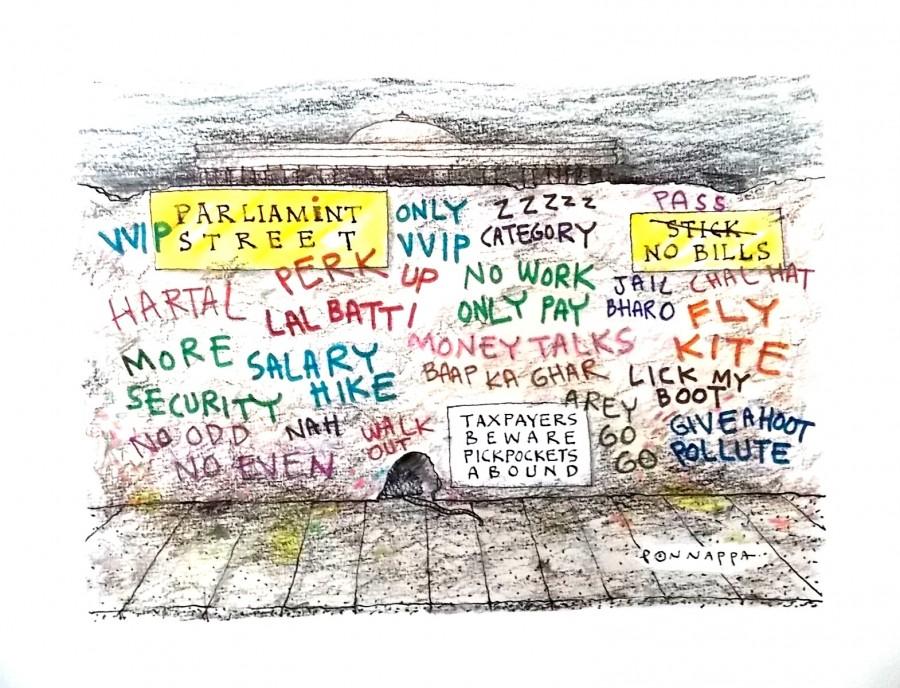 PARLIAMiNT
STREET
VVIP
ONLY
VVIP
ZZZZZ
CATEGORY
PASS
STICK
NO BILLS
HARTAL
PERK UP
LAL BATTI
NO WORK
ONLY PAY
JAIL
BHARO
CHAL HAT
FLY
KITE
MORE
SECURITY
SALARY
HIKE
MONEY TALKS
BAAP KA-GHAR
LICK MY
BOOT
NO ODD
NO EVEN
NAH
WALK
OUT
TAXPAYERS
BEWARE
PICKPOCKETS
ABOUND
AREY
GO
GO
GIVE A HOOT
POLLUTE
PONNAPPA